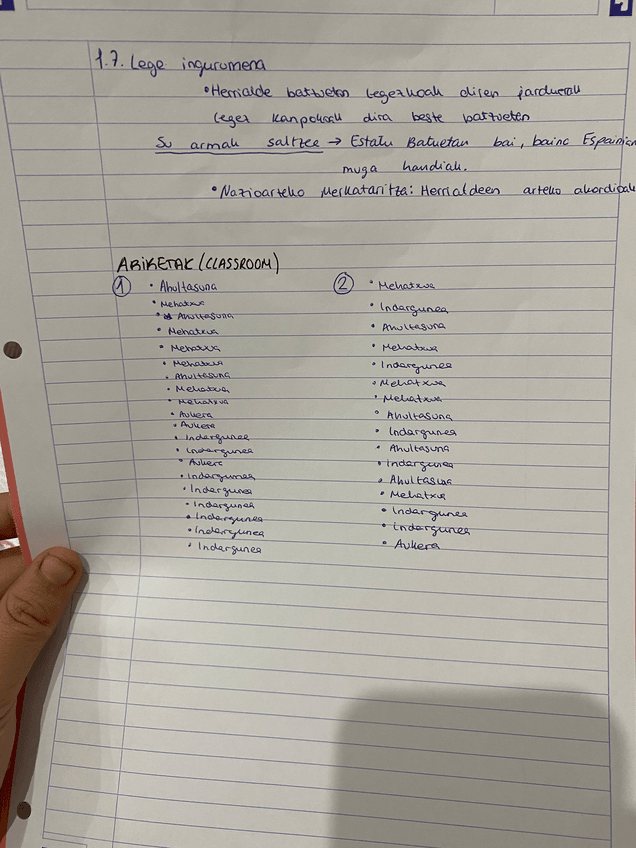 1.7. Lege ingurumena
• Herrialde batzuetan legezkoak diren jarduerak
legez kanpokoak dira beste batzuetan
Su armak saltzea → Estatu Batuetan bai, baina Espainian
muga handiak.
• Nazioarteko Merkataritza: Herrialdeen arteko akordioak
ARIKETAK (CLASSROOM)
1
• Ahultasuna
• Mehatxua
• Ahultasuna
• Mehatxua
• Mehatxua
• Mehatxua
• Ahultasuna
• Mehatxua
• Mehatxua
• Aukera
• Aukera
• Indargunea
• Indargunea
• Aukera
• Indargunea
• Indargunea
• Indargunea
• Indargunea
• Indargunea
• Indargunea
2
• Mehatxua
• Indargunea
• Ahultasuna
• Mehatxua
• Indargunea
• Mehatxua
• Mehatxua
• Ahultasuna
• Indargunea
• Ahultasuna
• Indargunea
• Ahultasuna
• Mehatxua
• Indargunea
• Indargunea
• Aukera